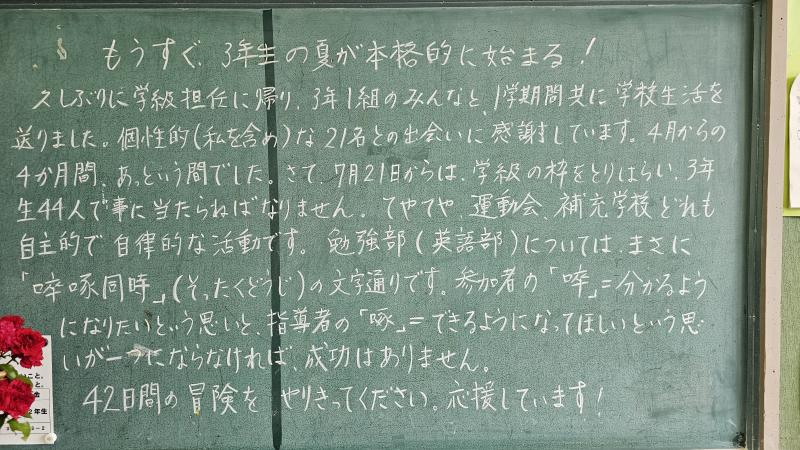 もうすぐ、3年生の夏が本格的に始まる！
久しぶりに学級担任に帰り、3年1組のみんなと、1学期間共に学校生活を
送りました。個性的(私を含め)な21名との出会いに感謝しています。4月からの
4か月間、あっという間でした。さて、7月21日からは、学級の枠をとりはらい、3年
生44人で事に当たらねばなりません。てやてや、運動会、補充学校どれも
自主的で自律的な活動です。勉強部(英語部)については、まさに
「啐啄同時」(そったくどうじ)の文字通りです。参加者の「啐」=分かるよう
になりたいという思いと、指導者の「啄」=できるようになってほしいという思
いが一つにならなければ、成功はありません。
42日間の冒険をやりきってください。応援しています！